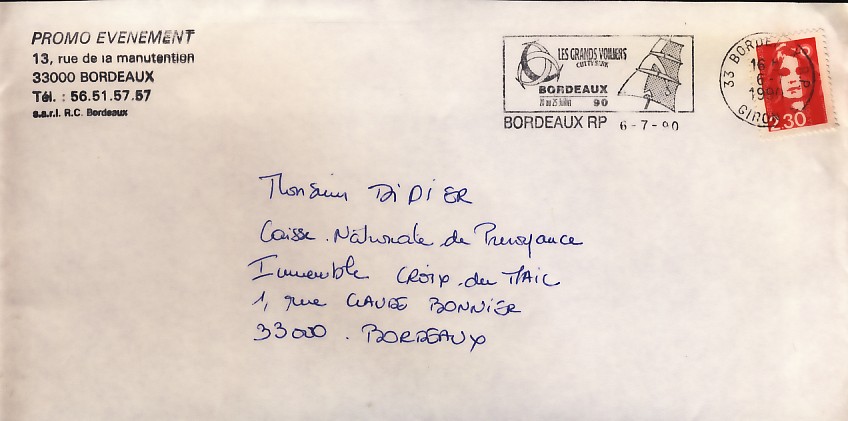 PROMO EVENEMENT
13, rue de la manutention
33000 BORDEAUX
Tél. : 56.51.57.57
s.a.r.l. R.C. Bordeaux
LES GRANDS VOILIERS
CUTTY SARK
BORDEAUX
20 au 25 Juillet 90
BORDEAUX RP 6-7-90
33 BORDEAUX R.P
16 H
6-7
1990
GIRONDE
2.30
Monsieur DIDIER
Caisse Nationale de Prevoyance
Immeuble CROIX du MAIL
1, rue CLAUDE BONNIER
33000. BORDEAUX